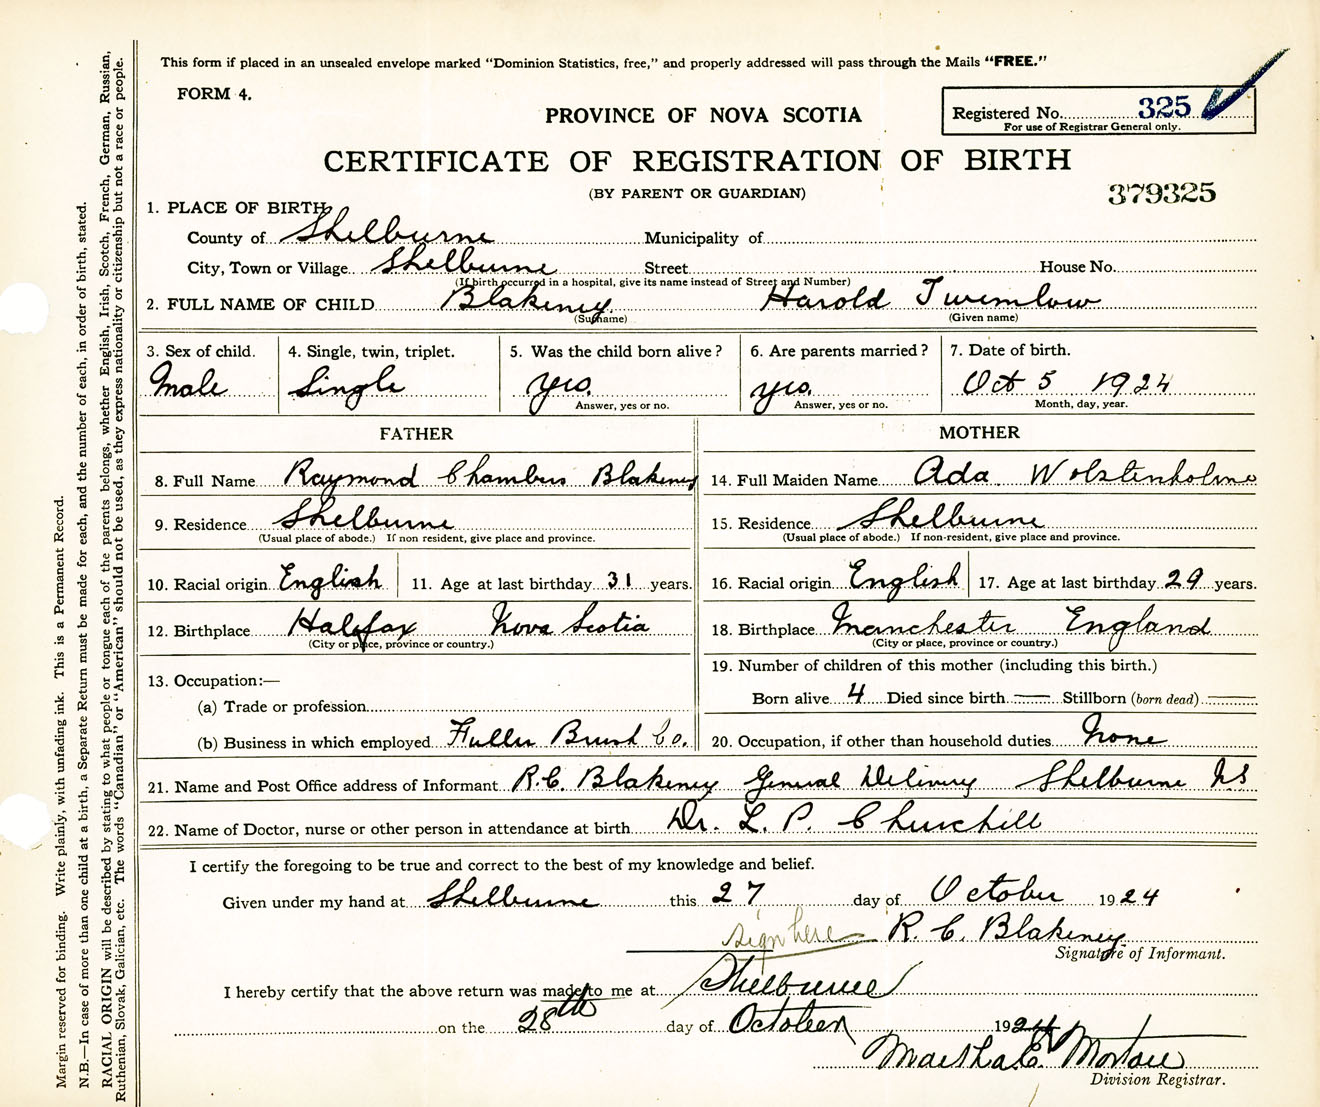 This form if placed in an unsealed envelope marked "Dominion Statistics, free," and properly addressed will pass through the Mails "FREE."
FORM 4.
PROVINCE OF NOVA SCOTIA
Registered No. 325
For use of Registrar General only.
CERTIFICATE OF REGISTRATION OF BIRTH
(BY PARENT OR GUARDIAN)
379325
1. PLACE OF BIRTH
County of Shelburne Municipality of
City, Town or Village Shelburne Street House No.
(If birth occurred in a hospital, give its name instead of Street and Number)
2. FULL NAME OF CHILD Blakeney Harold Twemlow
(Surname) (Given name)
3. Sex of child. 4. Single, twin, triplet. 5. Was the child born alive? 6. Are parents married? 7. Date of birth.
Male Single yes. yes. Oct 5 1924
Answer, yes or no. Answer, yes or no. Month, day, year.
FATHER MOTHER
8. Full Name Raymond Chambers Blakeney 14. Full Maiden Name Ada Wolstenholme
9. Residence Shelburne 15. Residence Shelburne
(Usual place of abode.) If non resident, give place and province. (Usual place of abode.) If non-resident, give place and province.
10. Racial origin English 11. Age at last birthday 31 years. 16. Racial origin English 17. Age at last birthday 29 years.
12. Birthplace Halifax Nova Scotia 18. Birthplace Manchester England
(City or place, province or country.) (City or place, province or country.)
13. Occupation:— 19. Number of children of this mother (including this birth.)
(a) Trade or profession Born alive 4 Died since birth — Stillborn (born dead)
(b) Business in which employed Fuller Brush Co. 20. Occupation, if other than household duties None
21. Name and Post Office address of Informant R.C. Blakeney General Delivery Shelburne NS
22. Name of Doctor, nurse or other person in attendance at birth Dr. L. P. Churchill
I certify the foregoing to be true and correct to the best of my knowledge and belief.
Given under my hand at Shelburne this 27 day of October 1924
sign here R. C. Blakeney
Signature of Informant.
I hereby certify that the above return was made to me at Shelburne
on the 28th day of October 1924
Martha E. Morton
Division Registrar.
Margin reserved for binding. Write plainly, with unfading ink. This is a Permanent Record.
N.B.—In case of more than one child at a birth, a Separate Return must be made for each, and the number of each, in order of birth, stated.
RACIAL ORIGIN will be described by stating to what people or tongue each of the parents belongs, whether English, Irish, Scotch, French, German, Russian,
Ruthenian, Slovak, Galician, etc. The words "Canadian" or "American" should not be used, as they express nationality or citizenship but not a race or people.